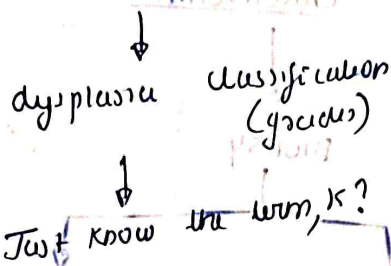 dysplasia classification
(grades)
Just know the term, K?